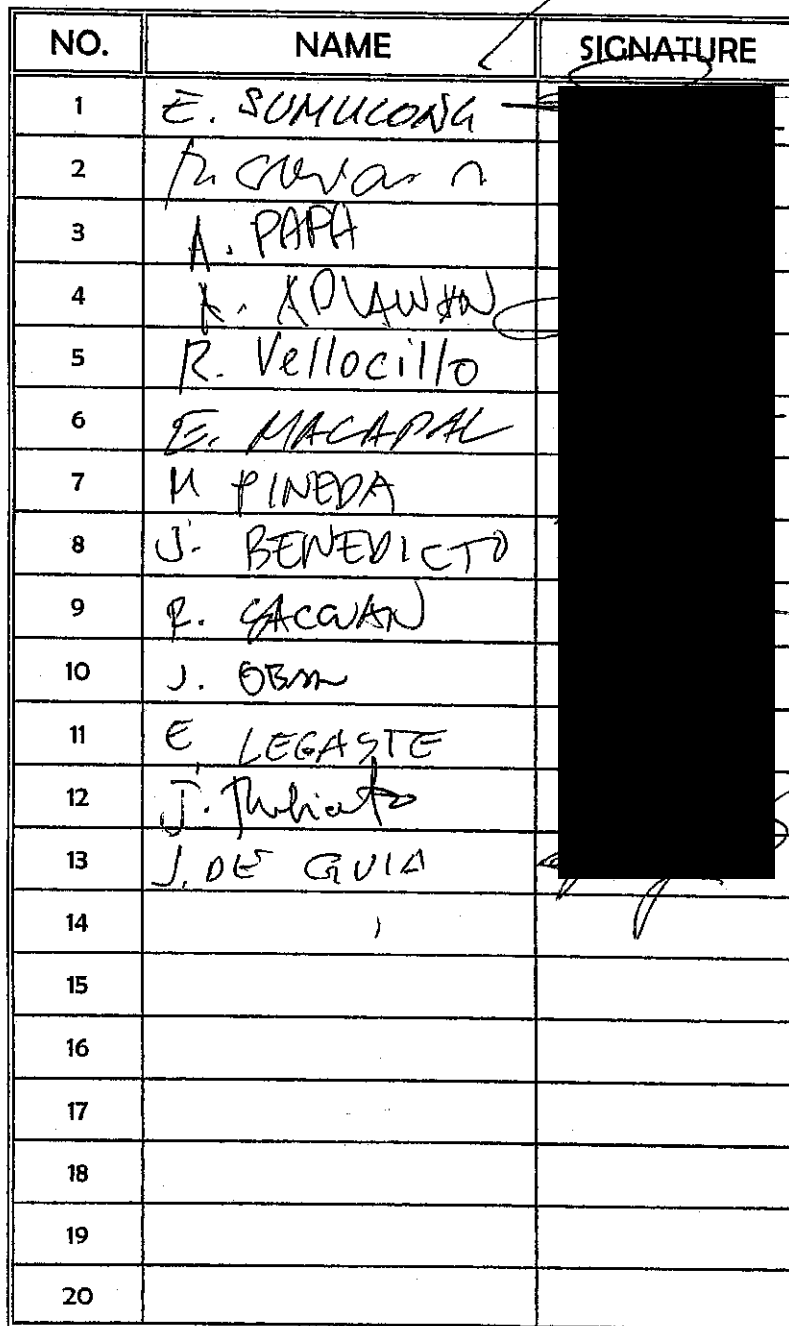 NO. NAME SIGNATURE
1 E. SUMUCONG
2
3 A. PAPA
4
5 R. Vellocillo
6 E. MACAPAL
7 M PINEDA
8 J. BENEDICTO
9 R.
10 J.
11 E LEGASTE
12 J.
13 J. DE GUIA
14
15
16
17
18
19
20